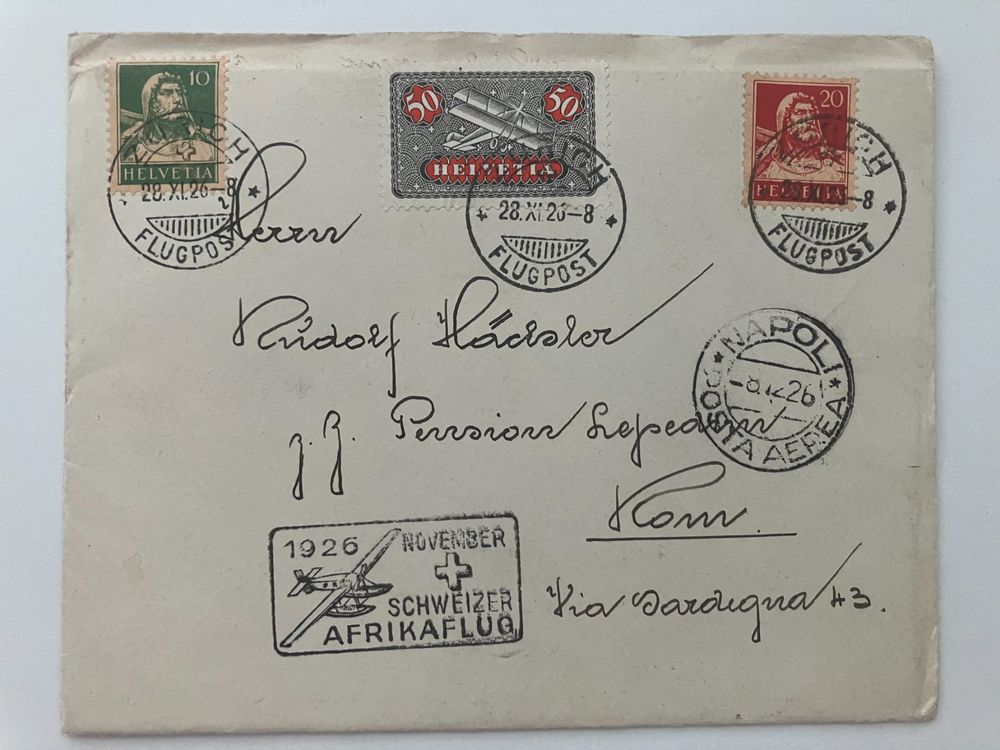 10
HELVETIA
50 50
HELVETIA
20
HELVETIA
ZÜRICH
28.XI.26-8
FLUGPOST
ZÜRICH
28.XI.26-8
FLUGPOST
ZÜRICH
28.XI.26-8
FLUGPOST
Herrn
Rudolf Hächler
z. Z. Pension
Rom.
Via Sardegna 43.
NAPOLI
8.12.26
POSTA AEREA
1926 NOVEMBER
SCHWEIZER
AFRIKAFLUG